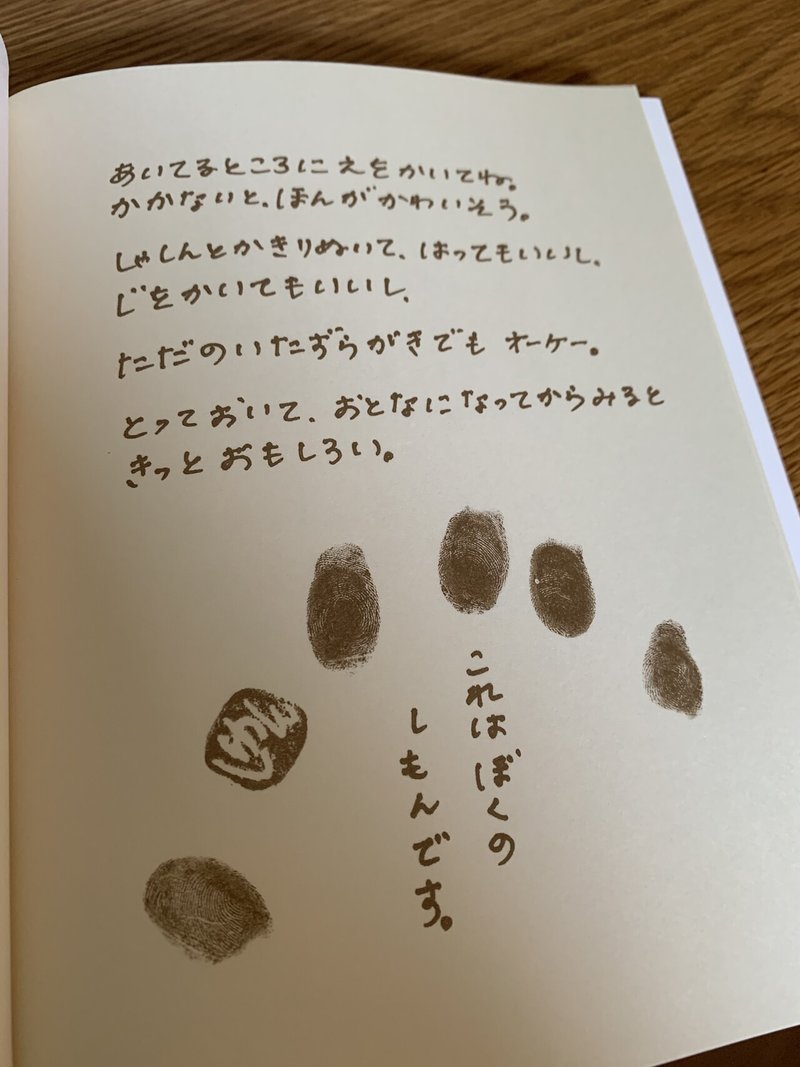 あいてるところに えを かいてね。
かかないと、ほんが かわいそう。
しゃしんとか きりぬいて、はってもいいし、
じを かいてもいいし、
ただの いたずらがきでも オーケー。
とっておいて、おとなに なってから みると
きっと おもしろい。
これは ぼくの
しもんです。